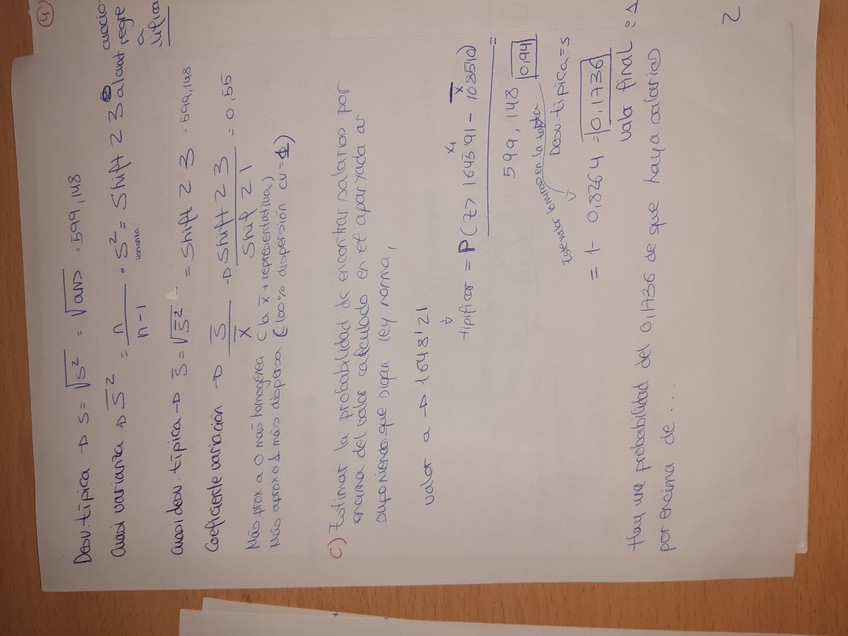 4
Desv. típica → S = √S² = √ans = 599,148
Cuasi varianza → S̄² = n / n-1 · S² = Shift 2 3 al cuad
Cuasi desv. típica → S̄ = √S̄² = Shift 2 3 · 599,148
Coeficiente variación → S̄ / X̄ → Shift 2 3 / Shift 2 1 = 0,55
Más prox a 0 más homogénea (la x̄ + representativa)
Más aprox a 1 más dispersa (100% dispersión cv = 1)
c) Estimar la probabilidad de encontrar salarios por
encima del valor calculado en el apartado a)
suponiendo que sigan ley norma,
valor a → 1648'21
tipificar = P(z > 1645'91 - 1085'10 / 599,148 =
x₁ x̄
0,94
Desv. típica = s
= 1 - 0,8264 = 0,1736
valor final
Hay una probabilidad del 0,1736 de que haya salarios
por encima de ...
2